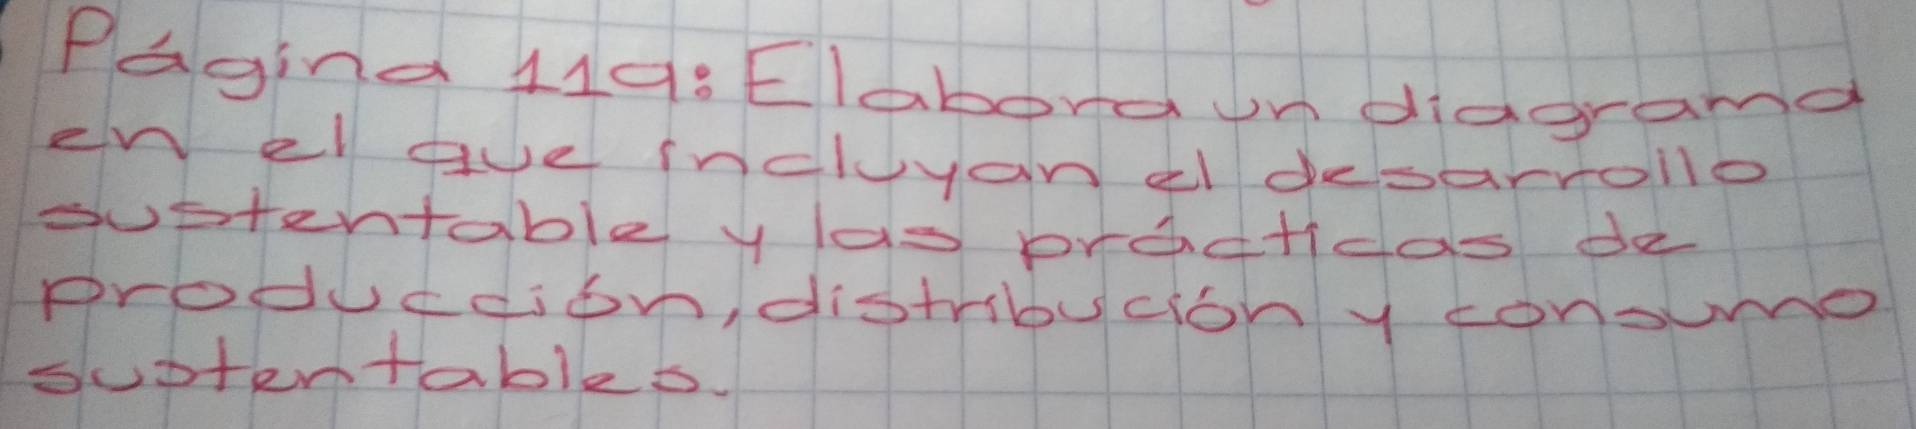 Página 119: Elabora un diagrama
en el que incluyan el desarrollo
sustentable y las prácticas de
producción, distribución y consumo
sustentables.